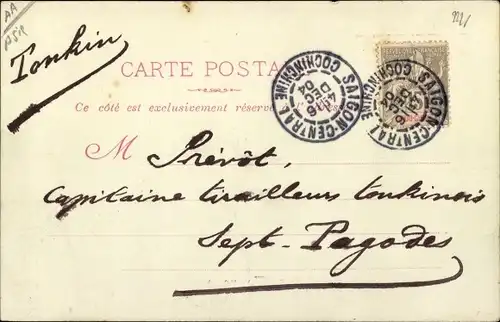 AA
Tonkin
CARTE POSTALE
Ce côté est exclusivement réservé à l'adresse
SAIGON-CENTRAL
6
DEC
04
COCHINCHINE
SAIGON-CENTRAL
6
DEC
04
COCHINCHINE
M Prévôt,
Capitaine tirailleurs tonkinois
Sept-Pagodes